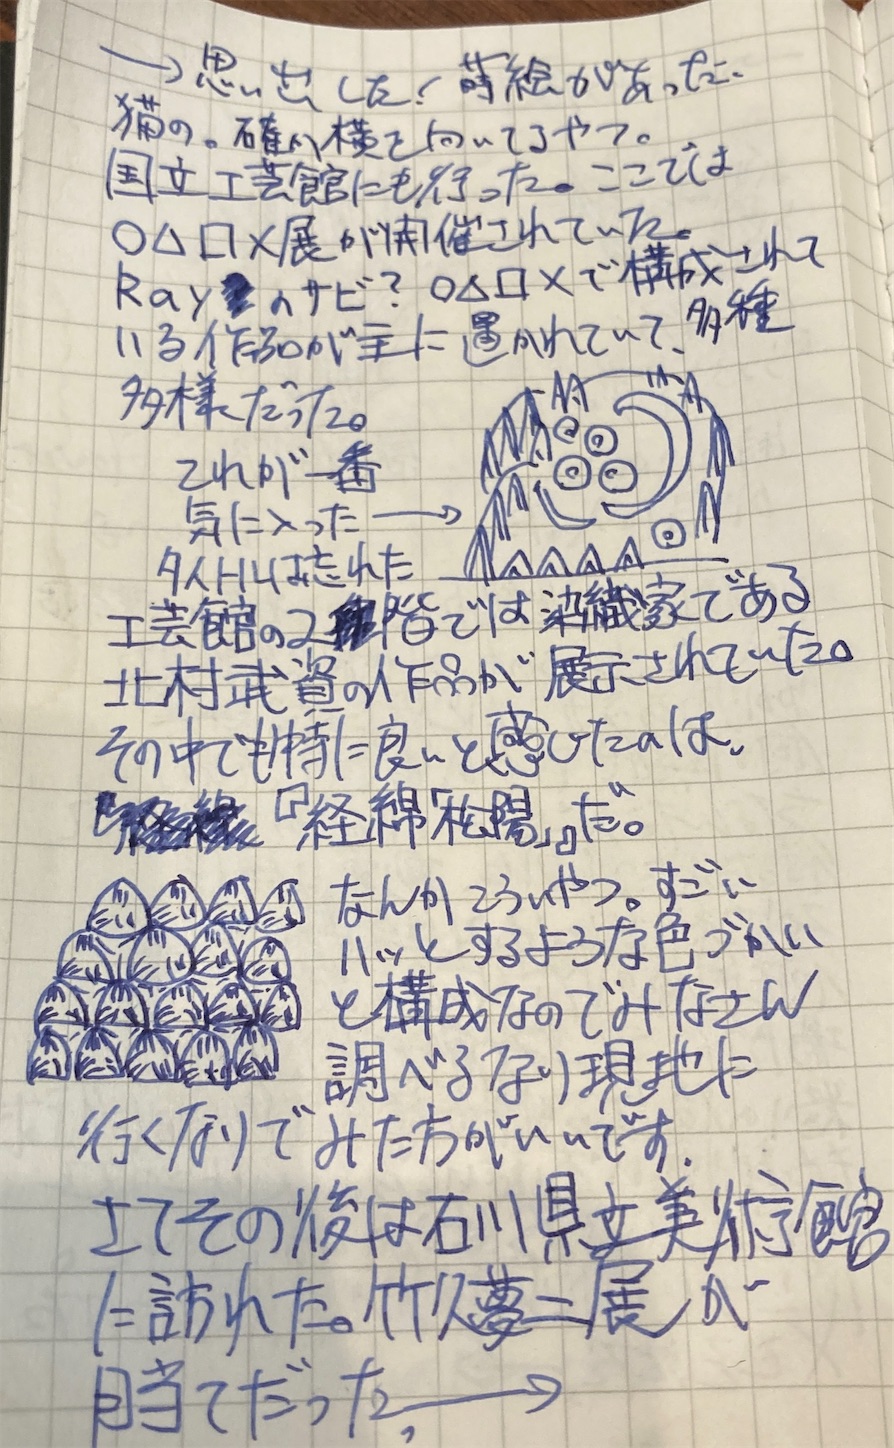 →思い出した!蒔絵があった。
猫の。確か横を向いてるやつ。
国立工芸館にも行った。ここでは
○△□×展が開催されていた。
Rayのサビ?○△□×で構成されて
いる作品が主に置かれていて、多種
多様だった。
これが一番
気に入った→
タイトルは忘れた
工芸館の2階では染織家である
北村武資の作品が展示されていた。
その中でも特に良いと感じたのは、
『経綿「松陽」』だ。
なんかころいやつ。すごい
ハッとするような色づかい
と構成なのでみなさん
調べるなり現地に
行くなりでみた方がいいです。
さてその後は石川県立美術館
に訪れた。竹久夢二展が
目当てだった。→